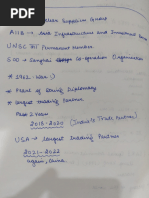 Nuclear Suppliers Group
AIIB → Asia Infrastructure and Investment Bank
UNSC Permanent Member
SCO → Shanghai Co-operation Organisation
* 1962 War )
* Place of During Diplomacy
* largest trading Partner
Past 2 Years
2018-2020 (India's Trade Partner)
USA → Largest Trading Partner
2021-2022
again, China